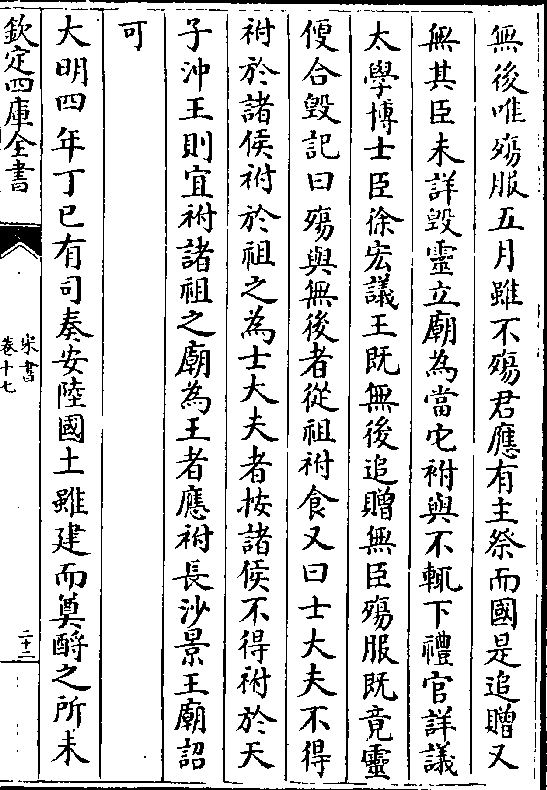 無後唯殤服五月雖不殤君應有主祭而國是追贈又
無其臣未詳毀靈立廟為當它祔與不輒下禮官詳議
太學博士臣徐宏議王既無後追贈無臣殤服既竟靈
便合毀記曰殤與無後者從祖祔食又曰士大夫不得
祔於諸侯祔於祖之為士大夫者按諸侯不得祔於天
子沖王則宜祔諸祖之廟為王者應祔長沙景王廟詔
可
大明四年丁巳有司奏安陸國土雖建而奠酹之所未
欽定四庫全書
宋書
卷十七
二十二